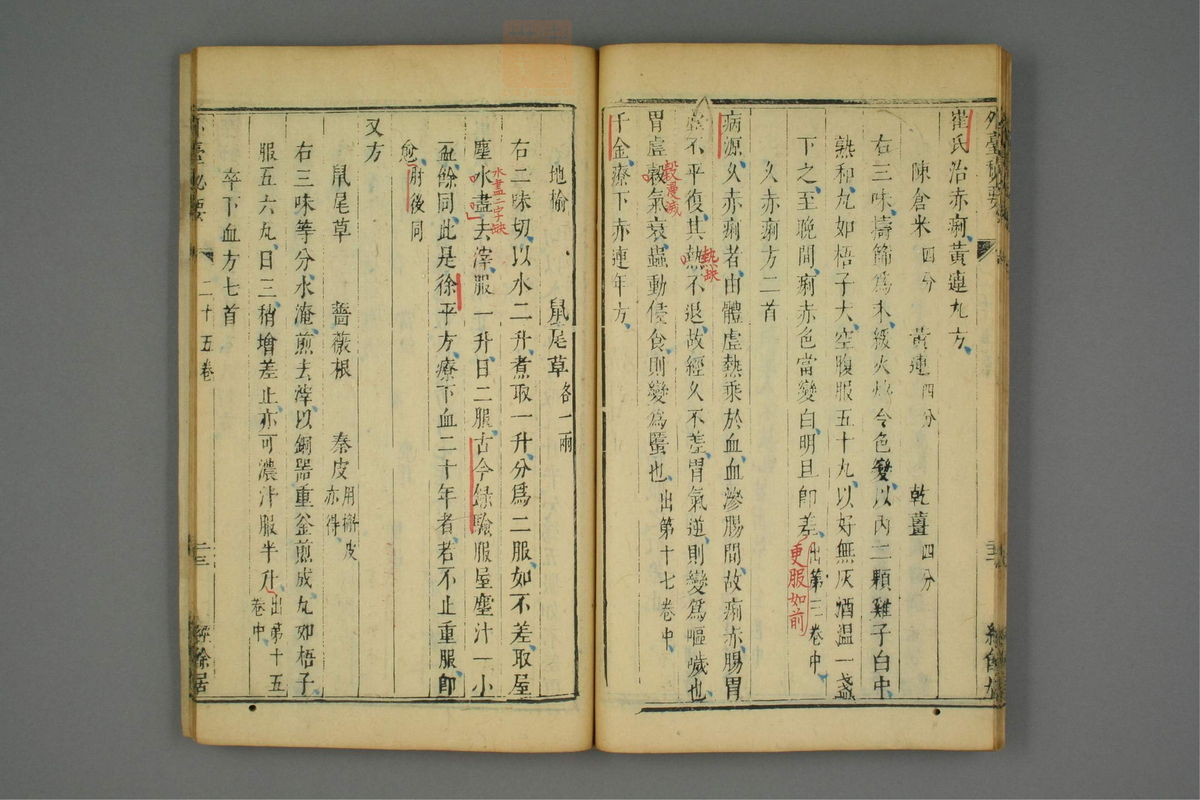 崔氏治赤痢黃連丸方
陳倉米四分　黃連四分　乾薑四分
右三味擣篩爲末緩火炒令色變以內二顆雞子白中
熟和丸如梧子大空腹服五十丸以好無灰酒溫一盞
下之至晚間痢赤色當變白明旦卽差出第三卷中
更服如前
久赤痢方二首
病源久赤痢者由體虛熱乘於血血滲腸間故痢赤腸胃
虛不平復其熱不退故經久不差胃氣逆則變爲嘔噦也
熱缺
胃虛穀氣衰蟲動侵食則變爲䘌也出第十七卷中
穀漫滅
千金療下赤連年方
地榆　鼠尾草各一兩
右二味切以水二升煮取一升分爲二服如不差取屋
塵水盡去滓服一升日二服古今錄驗服屋塵汁一小
水盡二字缺
䀇餘同此是徐平方療下血二十年者若不止重服卽
愈肘後同
又方
鼠尾草　薔薇根　秦皮用槲皮亦得
右三味等分水淹煎去滓以銅器重釜煎成丸如梧子
服五六丸日三稍增差止亦可濃汁服半升出第十五卷中
卒下血方七首
二十五卷
經餘居